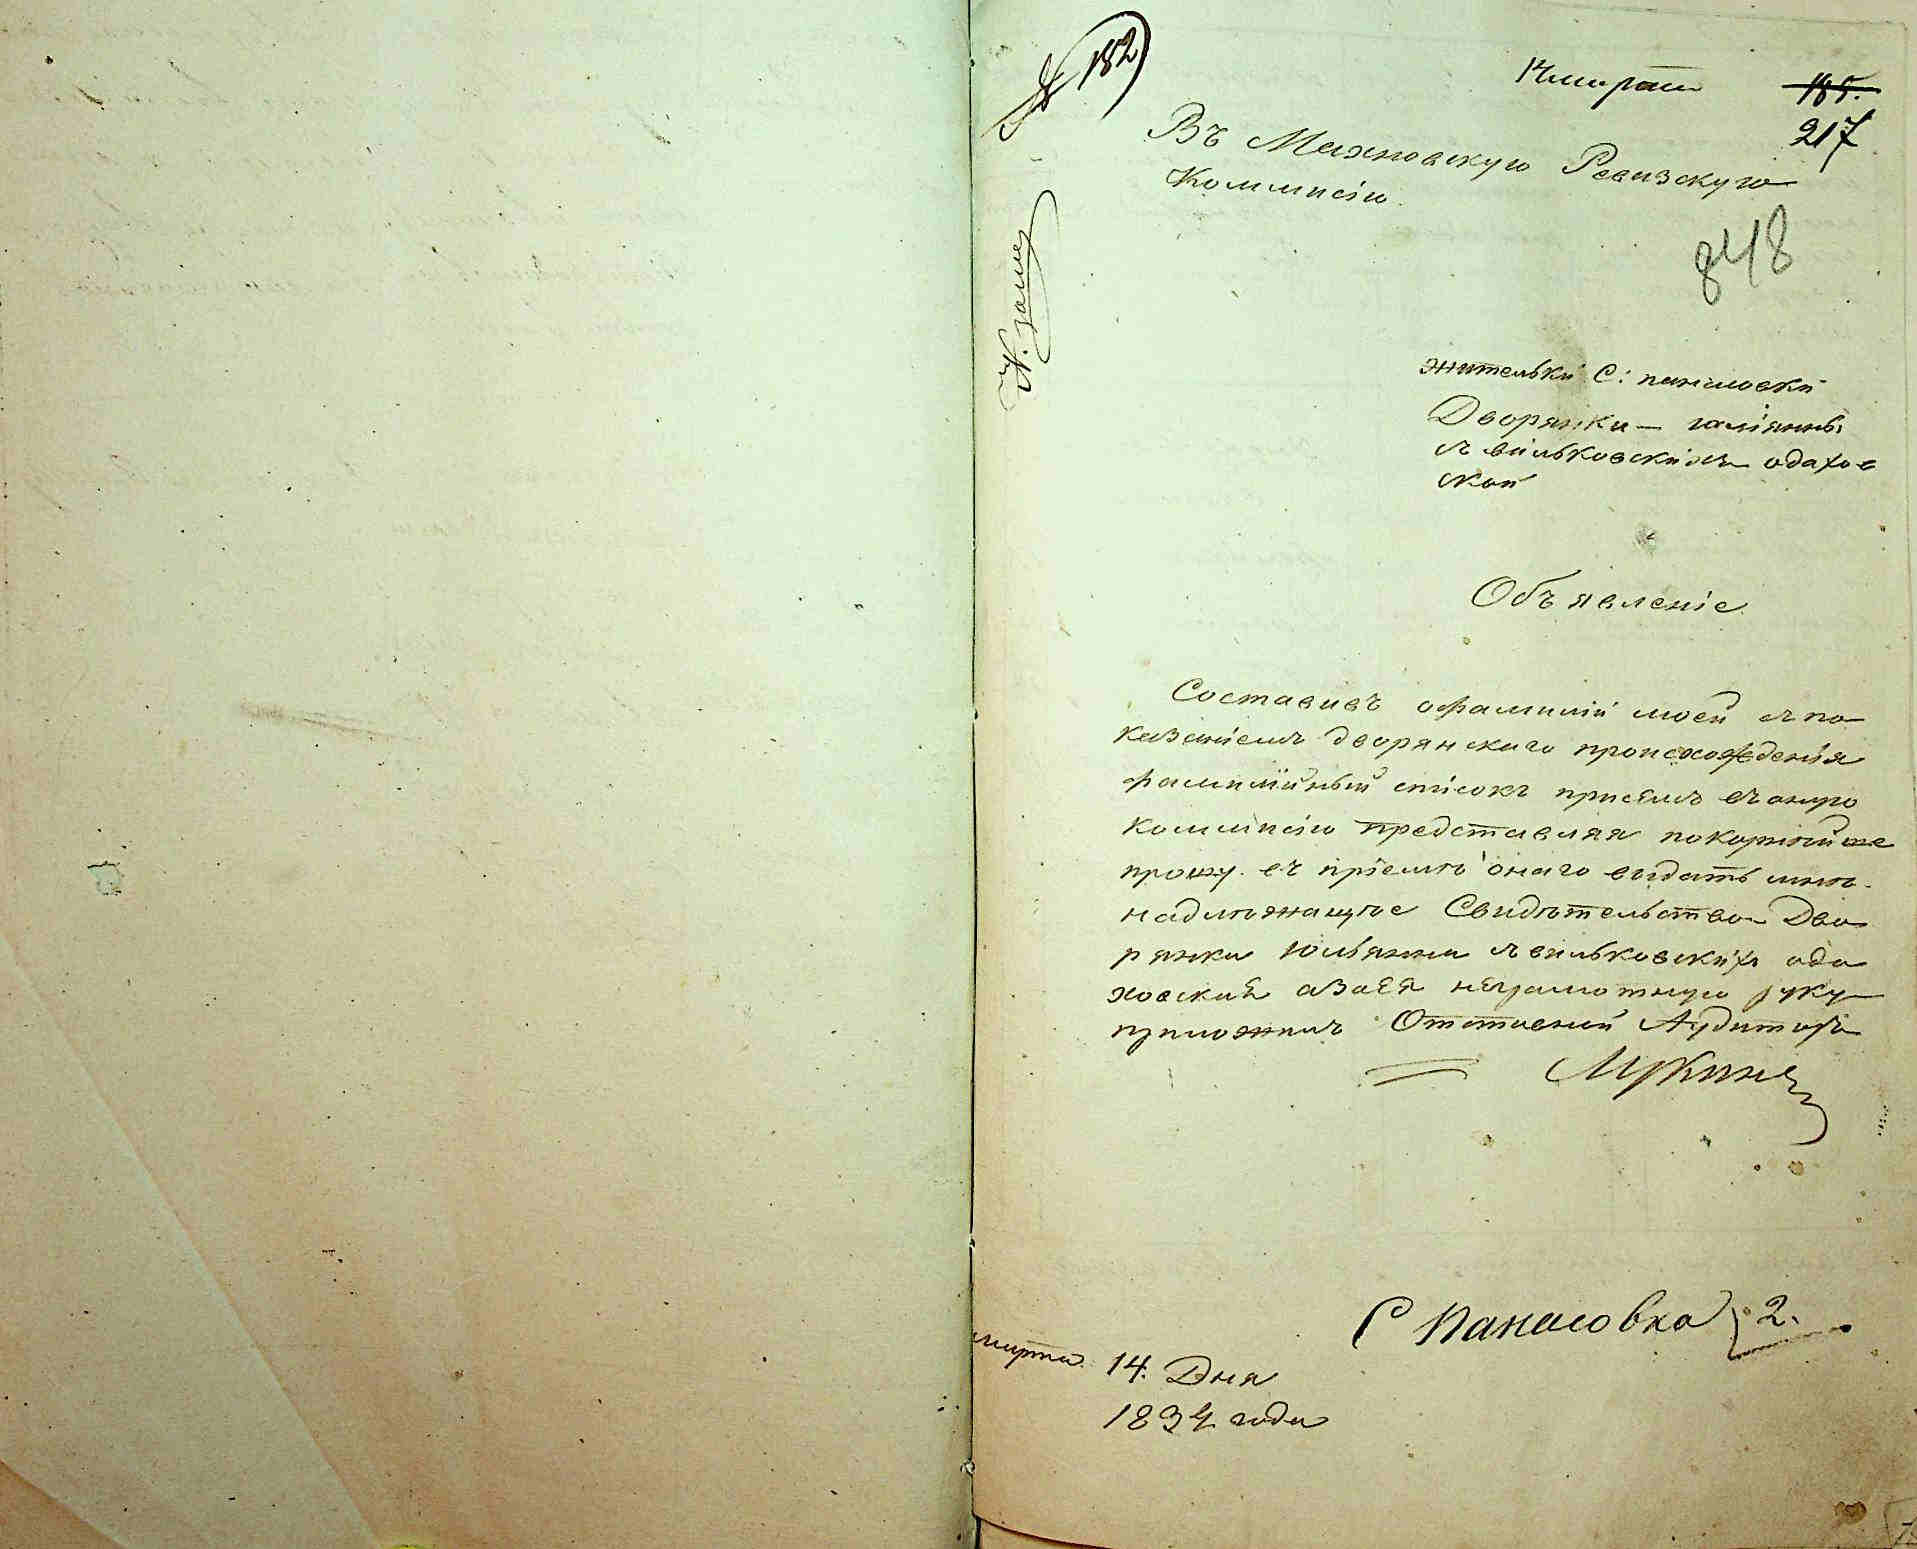 182
14 марта
185.
217
Въ Махновскую Ревизскую
Коммисію
848
жительки С: панасовки
Дворянки — юліянны
съ вильковскихъ одахов
ской
Объявленіе
Составивъ офамиліи моей спо
казаніемъ дворянскаго происхожденія
фамилійный списокъ присемъ въоную
коммисію представляя покорнѣйше
прошу въ пріемѣ онаго выдать мнѣ
надлѣжащее Свидѣтельство Дво
рянка Юльянна свильковскихъ ода
ховская азаея неграмотную руку
приложилъ Отставной Аудиторъ
С Панасовка 2.
марта 14. Дня
1834 года